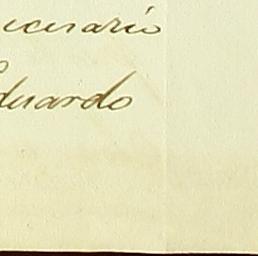 icisario
Eduardo